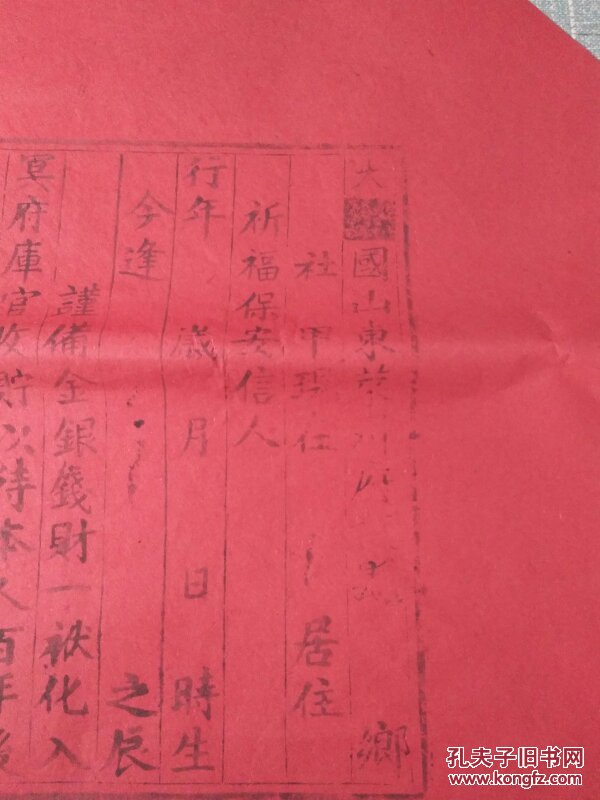 大國山東萊州府 鄉
社 甲 現住 居住
祈福保安信人
行年 歲 月 日 時生
今逢 之辰
謹備金銀錢財一袱化入
冥府庫官收貯以待本人百年後
孔夫子旧书网
www.kongfz.com